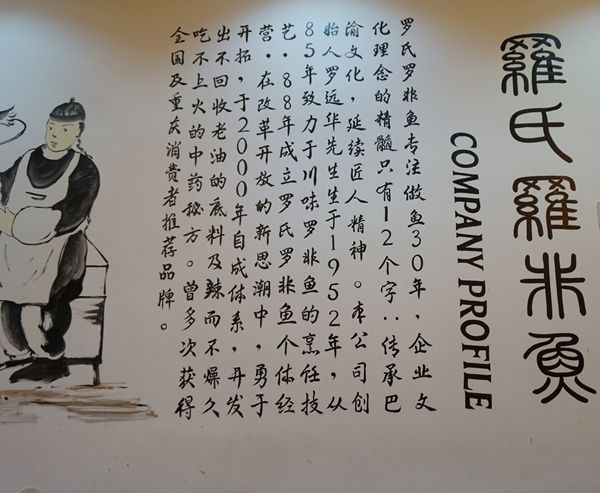 羅氏羅非魚
COMPANY PROFILE
罗氏罗非鱼专注做鱼30年，企业文
化理念的精髓只有12个字：传承巴
渝文化，延续匠人精神。本公司创
始人罗远华先生生于1952年，从
85年致力于川味罗非鱼的烹饪技
艺，88年成立罗氏罗非鱼个体经
营，在改革开放的新思潮中，勇于
开拓，于2000年自成体系，开发
出不回收老油的底料及辣而不燥久
吃不上火的中药秘方。曾多次获得
全国及重庆消费者推荐品牌。